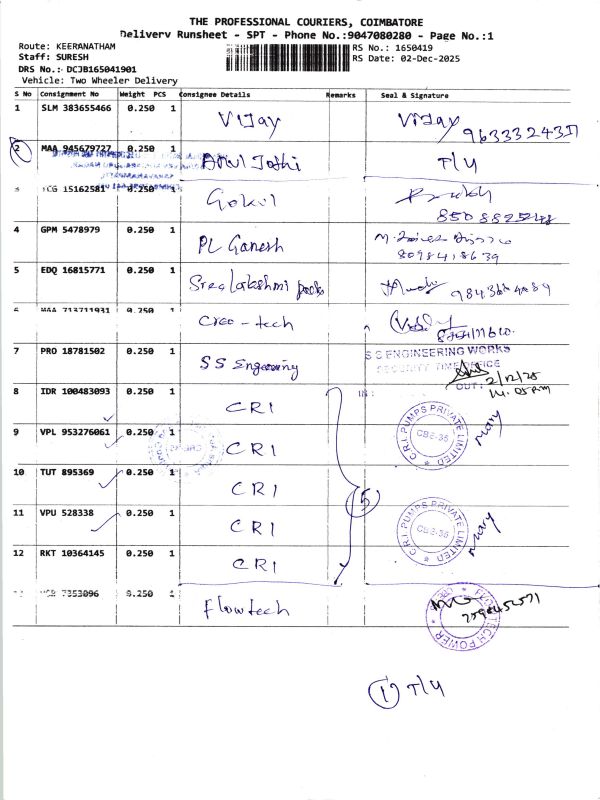 THE PROFESSIONAL COURIERS, COIMBATORE
Delivery Runsheet - SPT - Phone No.:9047080280 - Page No.:1
Route: KEERANATHAM
RS No.: 1650419
Staff: SURESH
RS Date: 02-Dec-2025
DRS No.: DCJB165041901
Vehicle: Two Wheeler Delivery
S No Consignment No Weight PCS Consignee Details Remarks Seal & Signature
1 SLM 383655466 0.250 1 Vijay Vijay
2 MAA 945679727 0.250 1 T/4
3 15162581 0.250 1 Gokul
4 GPM 5478979 0.250 1 PL Ganesh
5 EDQ 16815771 0.250 1
6 MAA 713711931 0.250 1 Creo-tech
7 PRO 18781502 0.250 1 SS Engineering
S S ENGINEERING WORKS
SECURITY TIME OFFICE
OUT: 2/12/25
IN:
8 IDR 100483093 0.250 1 CRI
C.R.I. PUMPS PRIVATE LIMITED
CBE-35
9 VPL 953276061 0.250 1 CRI
10 TUT 895369 0.250 1 CRI
5
11 VPU 528338 0.250 1 CRI
C.R.I. PUMPS PRIVATE LIMITED
CBE-35
12 RKT 10364145 0.250 1 CRI
7353096 0.250 1 Flowtech
1 T/4